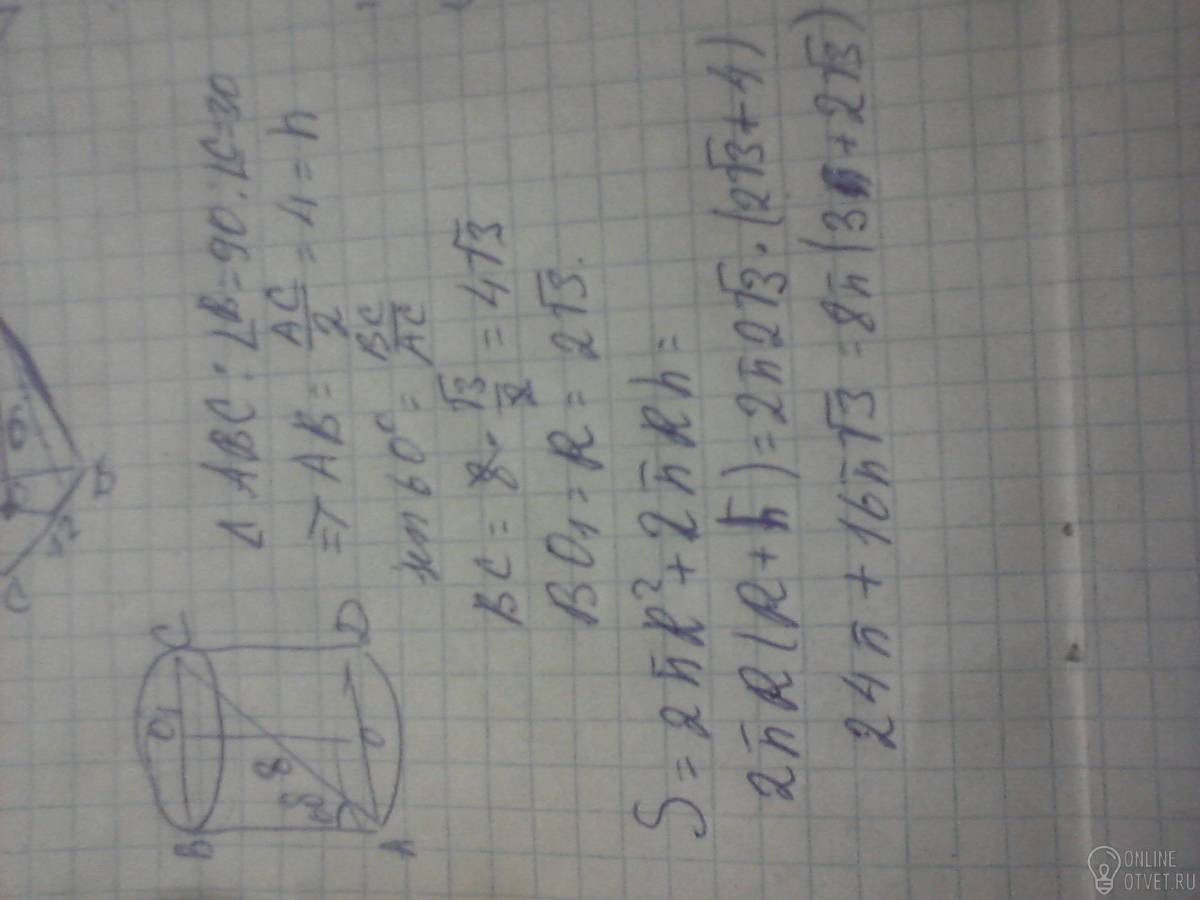 B
O₁
C
8
60
A
O
D
Δ ABC: ∠B=90. ∠C=30
=> AB = AC/2 = 4 = h
sin 60° = BC/AC
BC = 8 · √3/2 = 4√3
BO₁ = R = 2√3.
S = 2πR² + 2πRh =
2πR(R+h) = 2π2√3 · (2√3+4)
24π + 16π√3 = 8π(3+2√3)
ONLINE
OTVET.RU